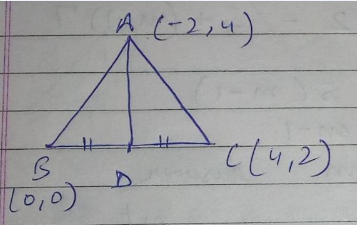 A (-2,4)
B
D
C(4,2)
(0,0)